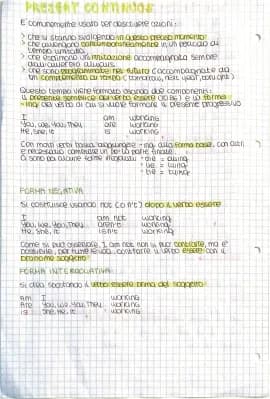 PRESENT CONTINUOUS
È comunemente usato per descrivere azioni:
> che si stanno svolgendo in questo preciso momento
> che avvengono contemporaneamente in un periodo di
tempo limitato
> che esprimono un mutazione accompagnata sempre
> che sono programmate nel futuro (accompagnate da
un complemento di tempo (tomorrow, next
Questo tempo viene formato usando due componenti:
il presente semplice del verbo essere (to be) e la forma
-ing del verbo di cui si vuole formare il presente progressivo
I am working
You, We, You, They are working
He, She, It is working
Con molti verbi basta aggiungere -ing alla forma base, con altri
è necessario cambiare in parte finale.
Ci sono poi alcune forme irregolari •die = dying
•lie = lying
•tie = tying
FORMA NEGATIVA
Si costruisce usando not (o n't) dopo il verbo essere
I am not working
You, We, You, They aren't working
He, She, It isn't working
Come si può osservare, I am not non si può contrarre, ma è
possibile, per tutte le voci, contrarre il verbo essere con il
pronome soggetto
FORMA INTERROGATIVA
Si crea spostando il verbo essere prima del soggetto
Am I working
Are You, We, You, They working
Is She, He, It working